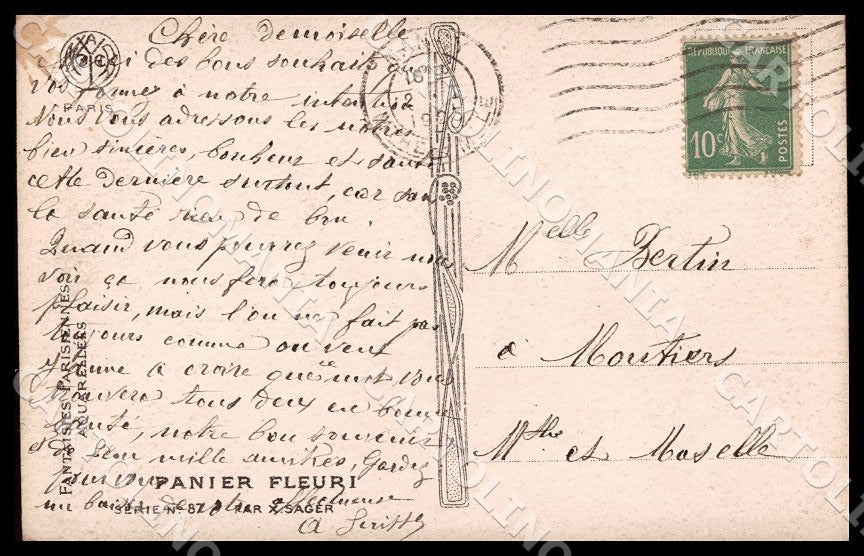 Chère demoiselle
Merci des bons souhaits
vos formés à notre intention
Nous vous adressons les nôtres
bien sincères, bonheur et santé
cette dernière surtout, car sans
la santé rien de bon.
Quand vous pourrez venir nous
voir ça nous fera toujours
plaisir, mais l'on ne fait pas
toujours comme on veut
J'aime à croire que ce mot vous
trouvera tous deux en bonne
santé, notre bon souvenir
mille amitiés, Gardez
pour vous
un baiser de votre affectueuse
A
PARIS
FANTAISIES PARISIENNES
AQUARELLÉES
PANIER FLEURI
SÉRIE No 87 PAR X. SAGER
RÉPUBLIQUE FRANÇAISE
10c
POSTES
Melle Bertin
à Moutiers
Mthe et Moselle
CARTOLINOMANIA